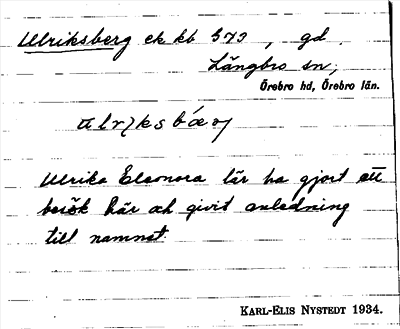 Ulriksberg ek kb 573, gd.
Längbro sn,
Örebro hd, Örebro län.
Ulrika Eleonora lär ha gjort ett
besök här och givit anledning
till namnet.
KARL-ELIS NYSTEDT 1934.